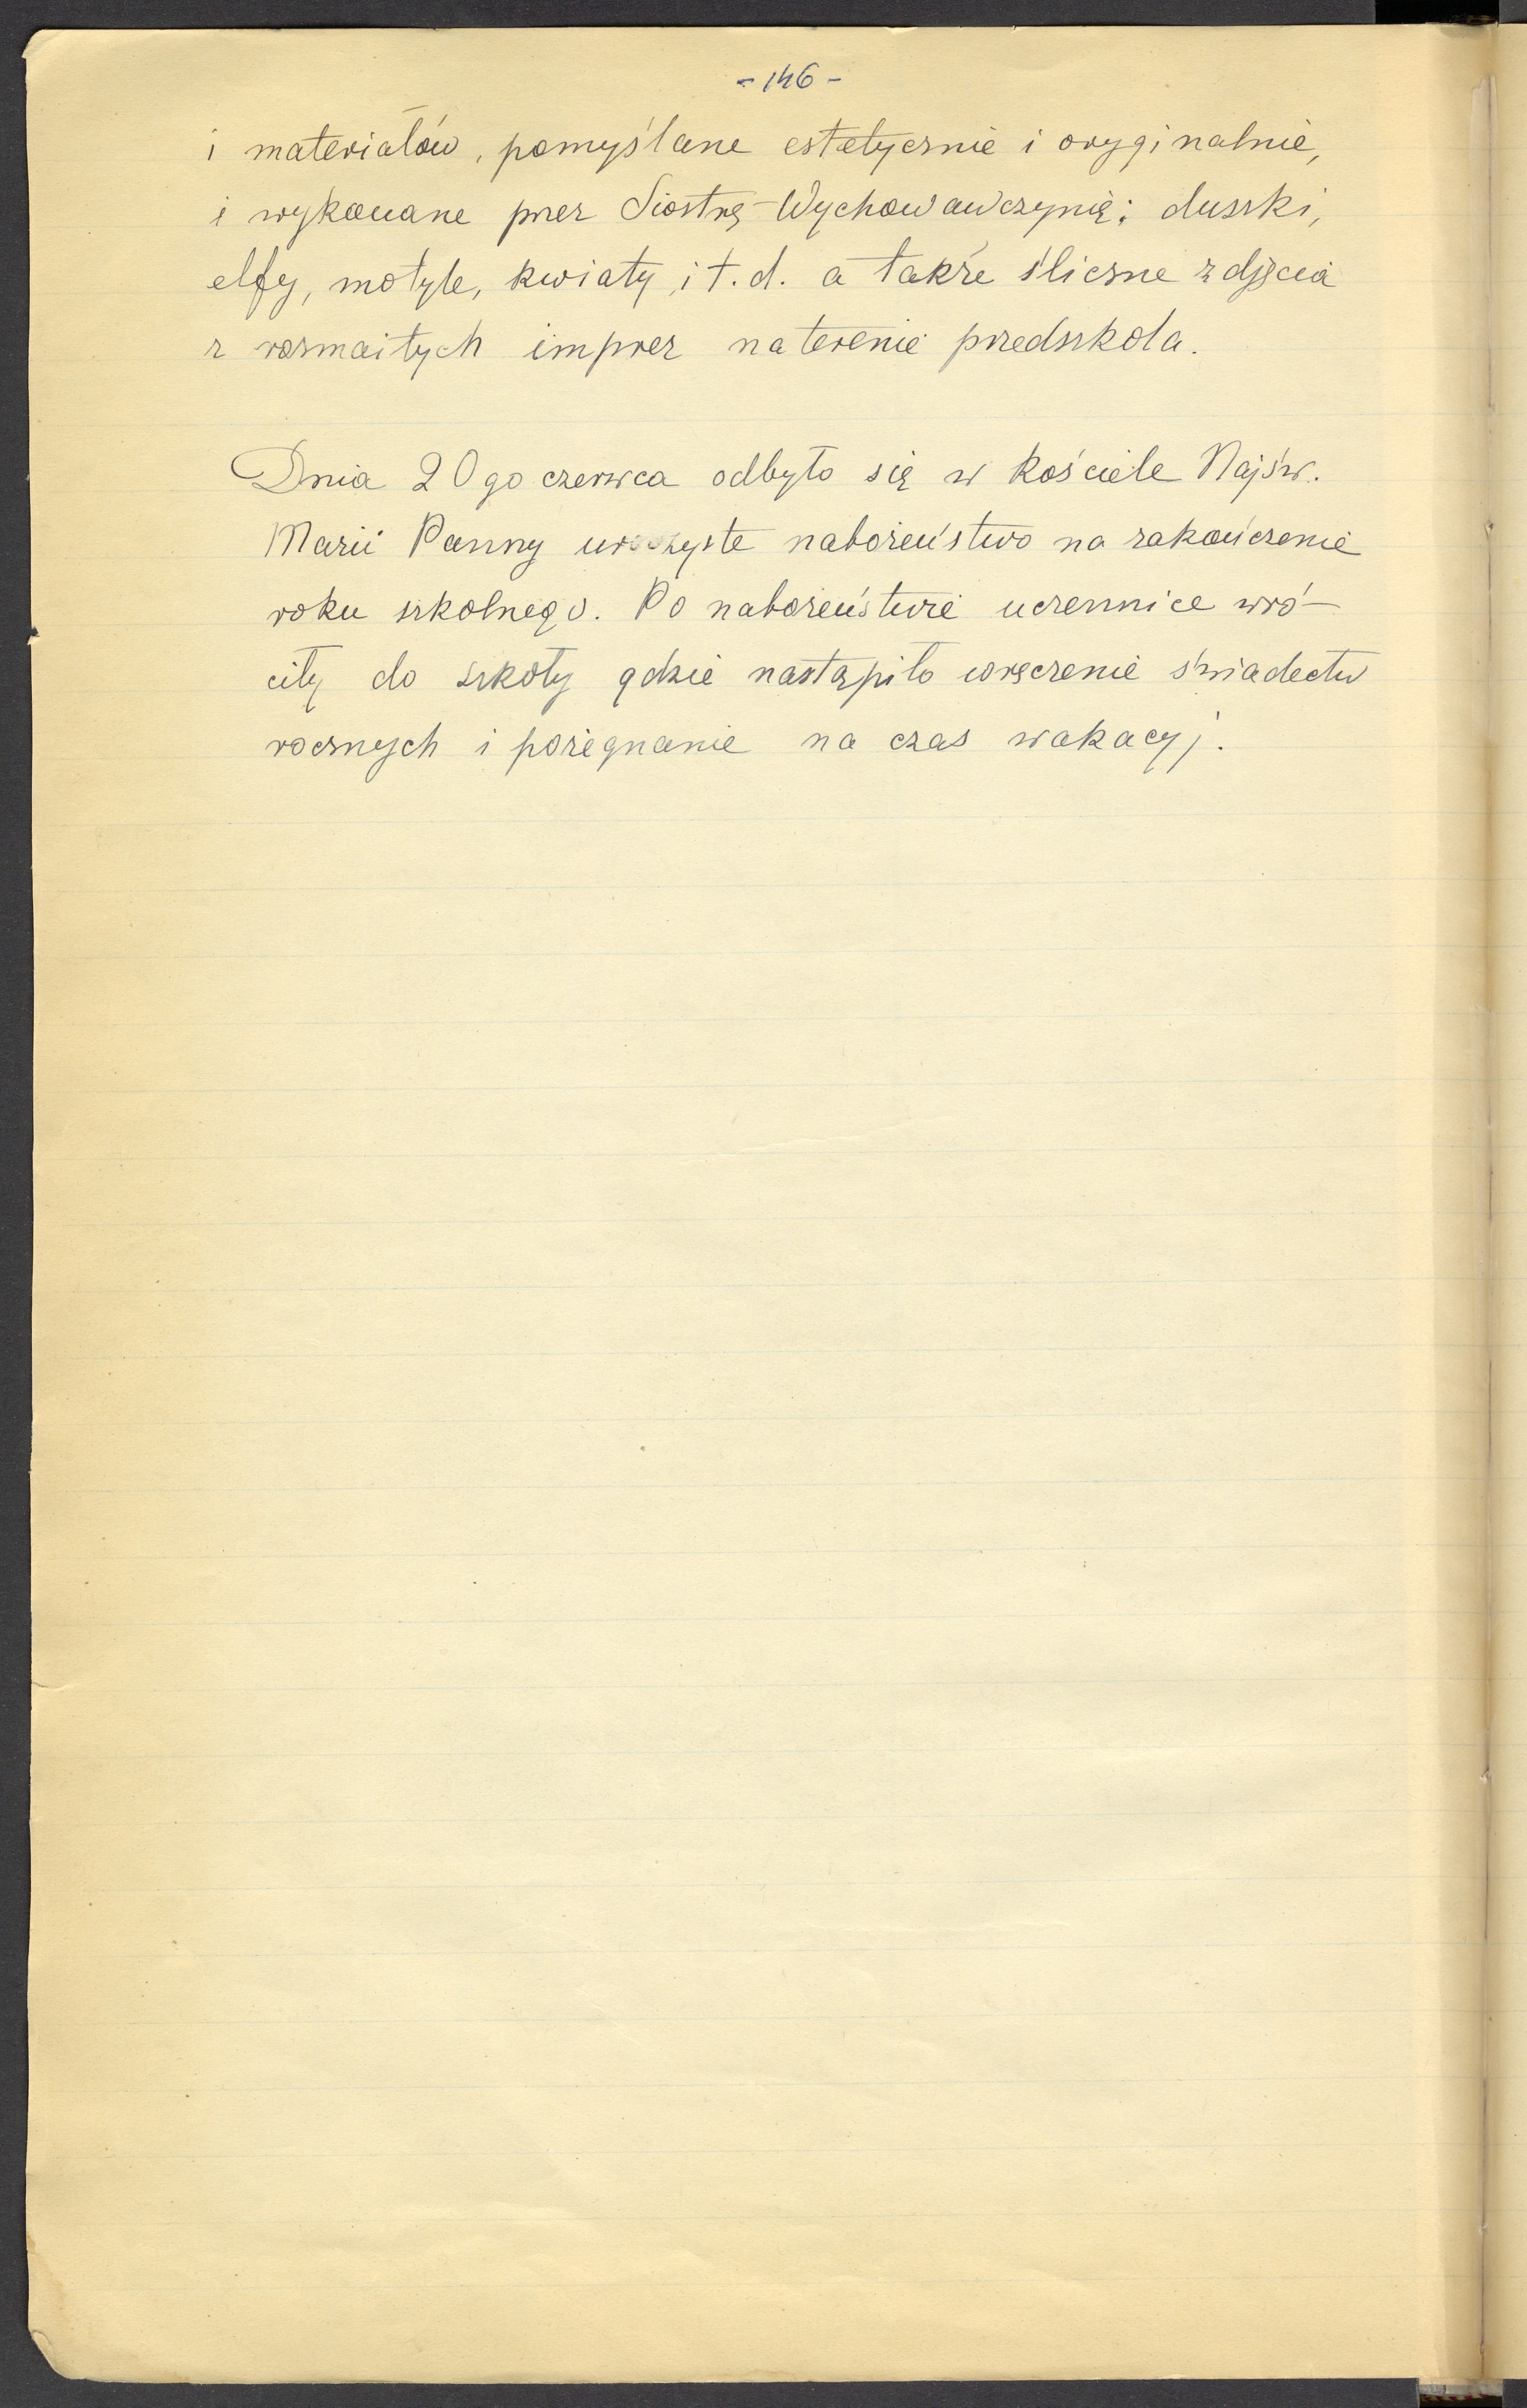 - 146 -
i materiałów, pomyślane estetycznie i oryginalnie,
i wykonane przez Siostrę-Wychowawczynię: duszki,
elfy, motyle, kwiaty, i t. d. a także śliczne zdjęcia
z rozmaitych imprez na terenie przedszkola.
Dnia 20go czerwca odbyło się w kościele Najśw.
Marii Panny uroczyste nabożeństwo na zakończenie
roku szkolnego. Po nabożeństwie uczennice wró-
ciły do szkoły gdzie nastąpiło wręczenie świadectw
rocznych i pożegnanie na czas wakacyj.